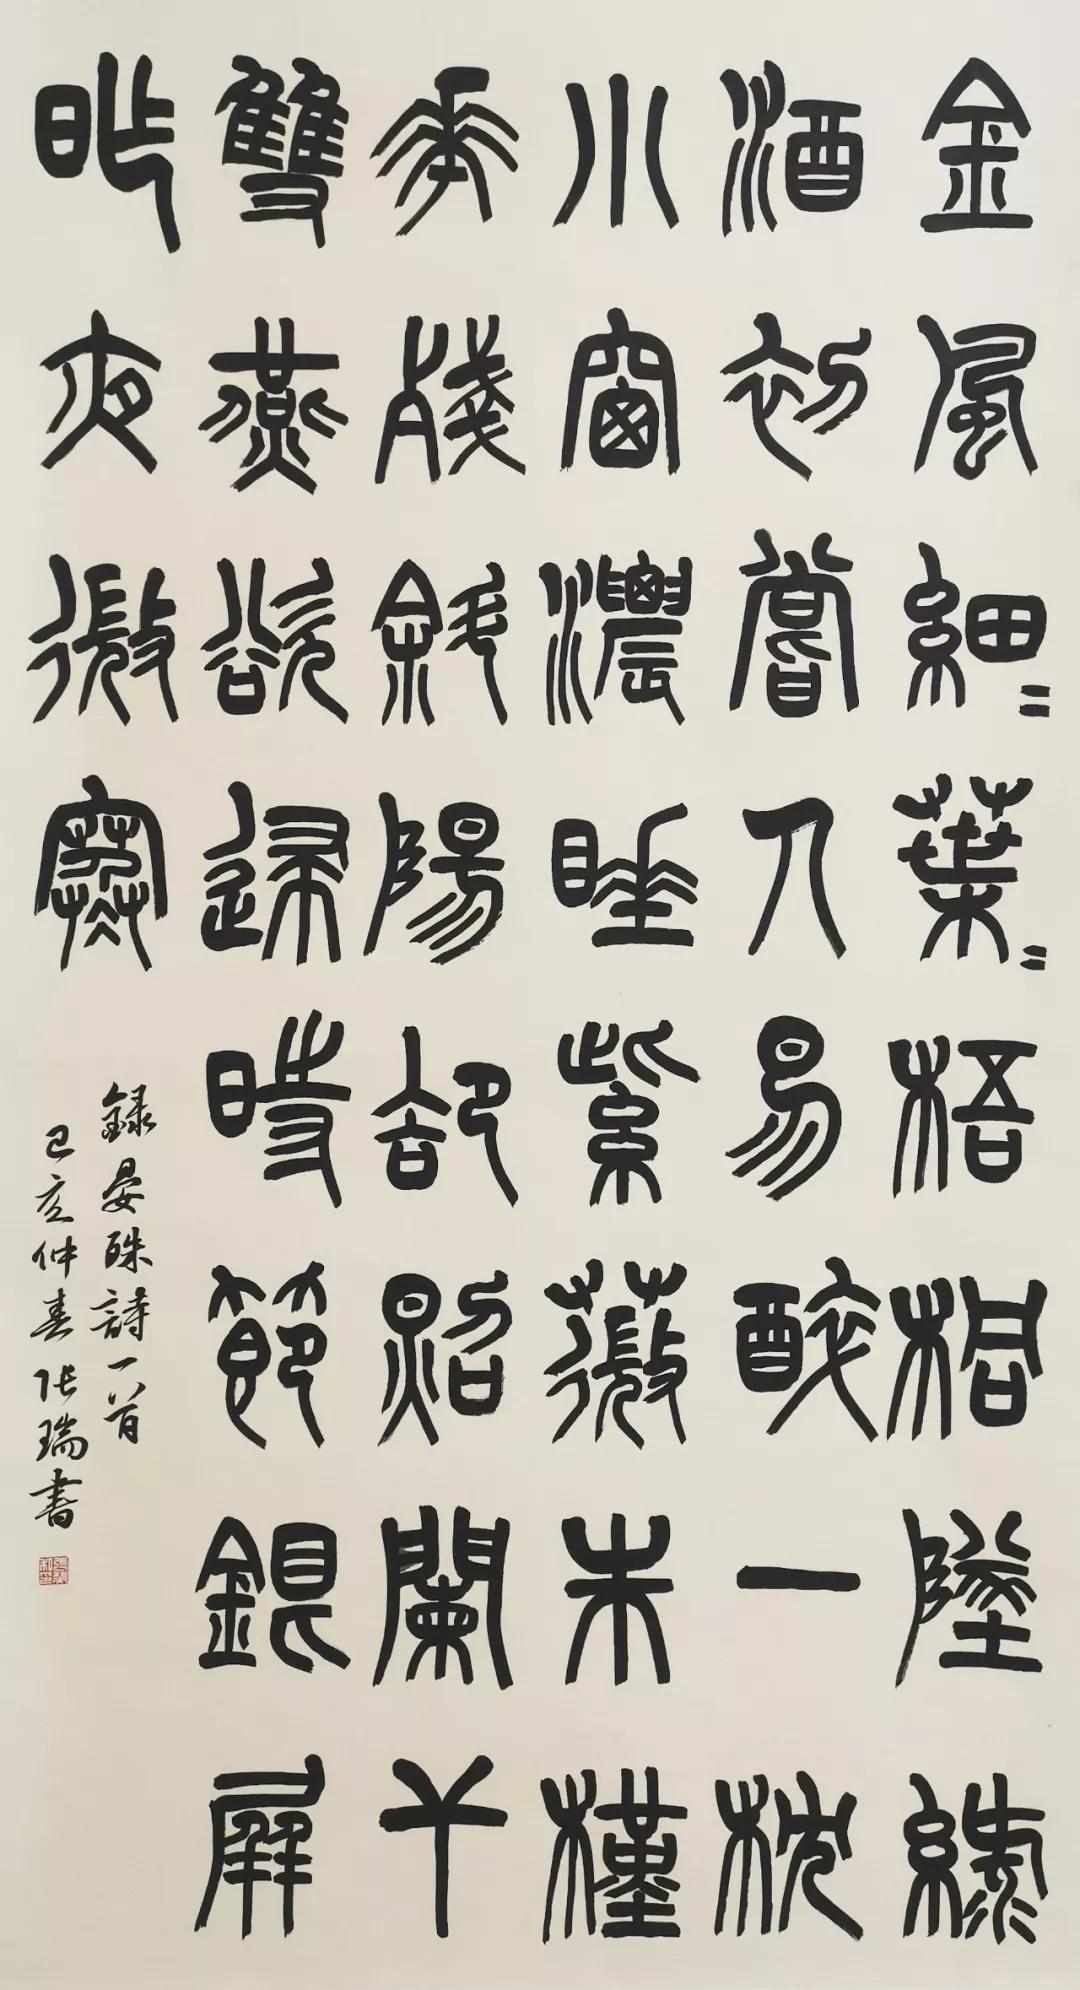 金風細〻葉〻梧桐墜綠
酒初嘗人易醉一枕
小窗濃睡紫薇朱槿
花殘斜陽卻照闌干
雙燕欲歸時節銀屏
昨夜微寒
録晏殊詩一首
己亥仲春張瑞書